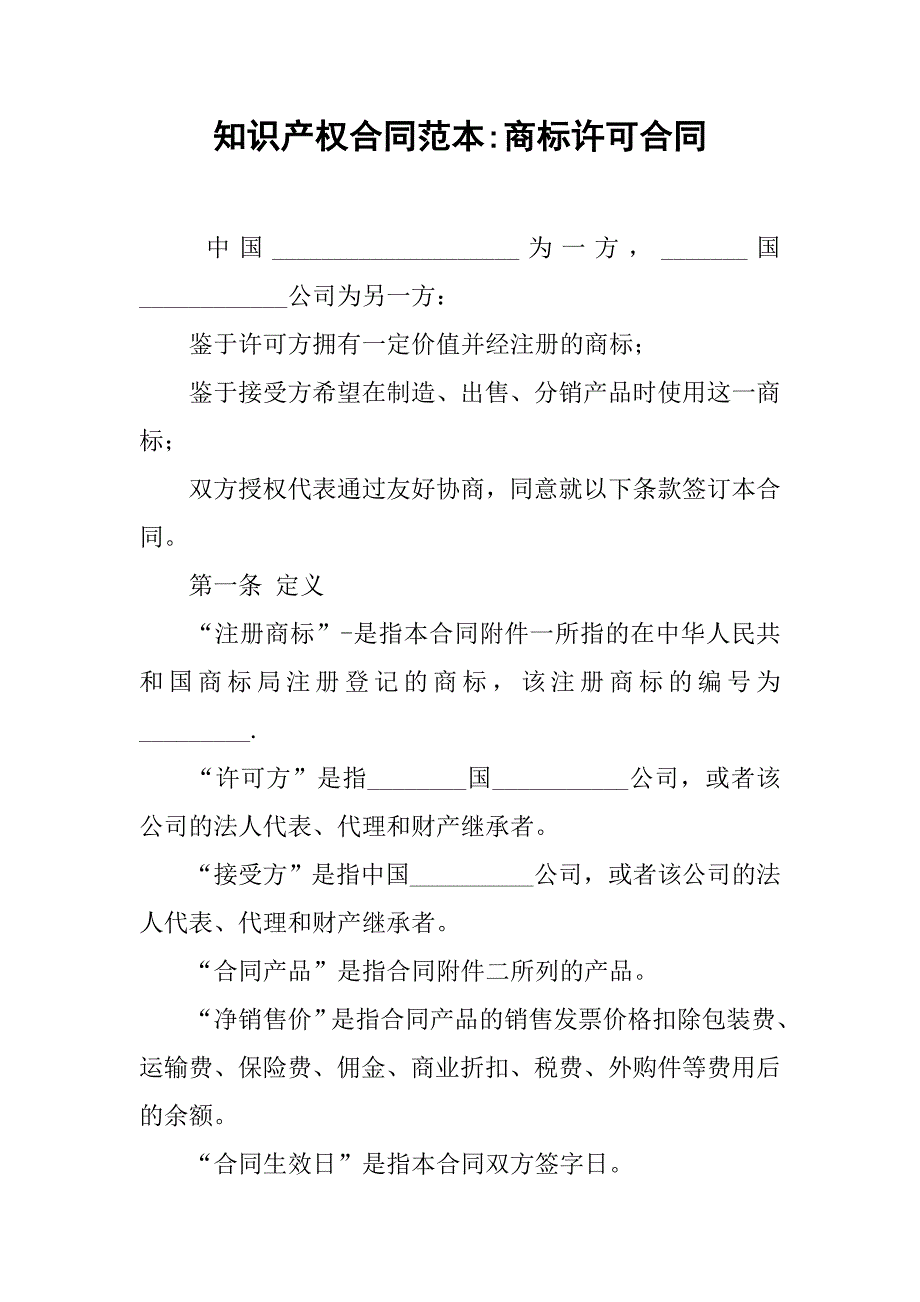 知识产权合同范本:商标许可合同
中国____________________为一方，_______国
____________公司为另一方：
鉴于许可方拥有一定价值并经注册的商标；
鉴于接受方希望在制造、出售、分销产品时使用这一商
标；
双方授权代表通过友好协商，同意就以下条款签订本合
同。
第一条 定义
“注册商标”-是指本合同附件一所指的在中华人民共
和国商标局注册登记的商标，该注册商标的编号为
_________.
“许可方”是指________国___________公司，或者该
公司的法人代表、代理和财产继承者。
“接受方”是指中国__________公司，或者该公司的法
人代表、代理和财产继承者。
“合同产品”是指合同附件二所列的产品。
“净销售价”是指合同产品的销售发票价格扣除包装费、
运输费、保险费、佣金、商业折扣、税费、外购件等费用后
的余额。
“合同生效日”是指本合同双方签字日。